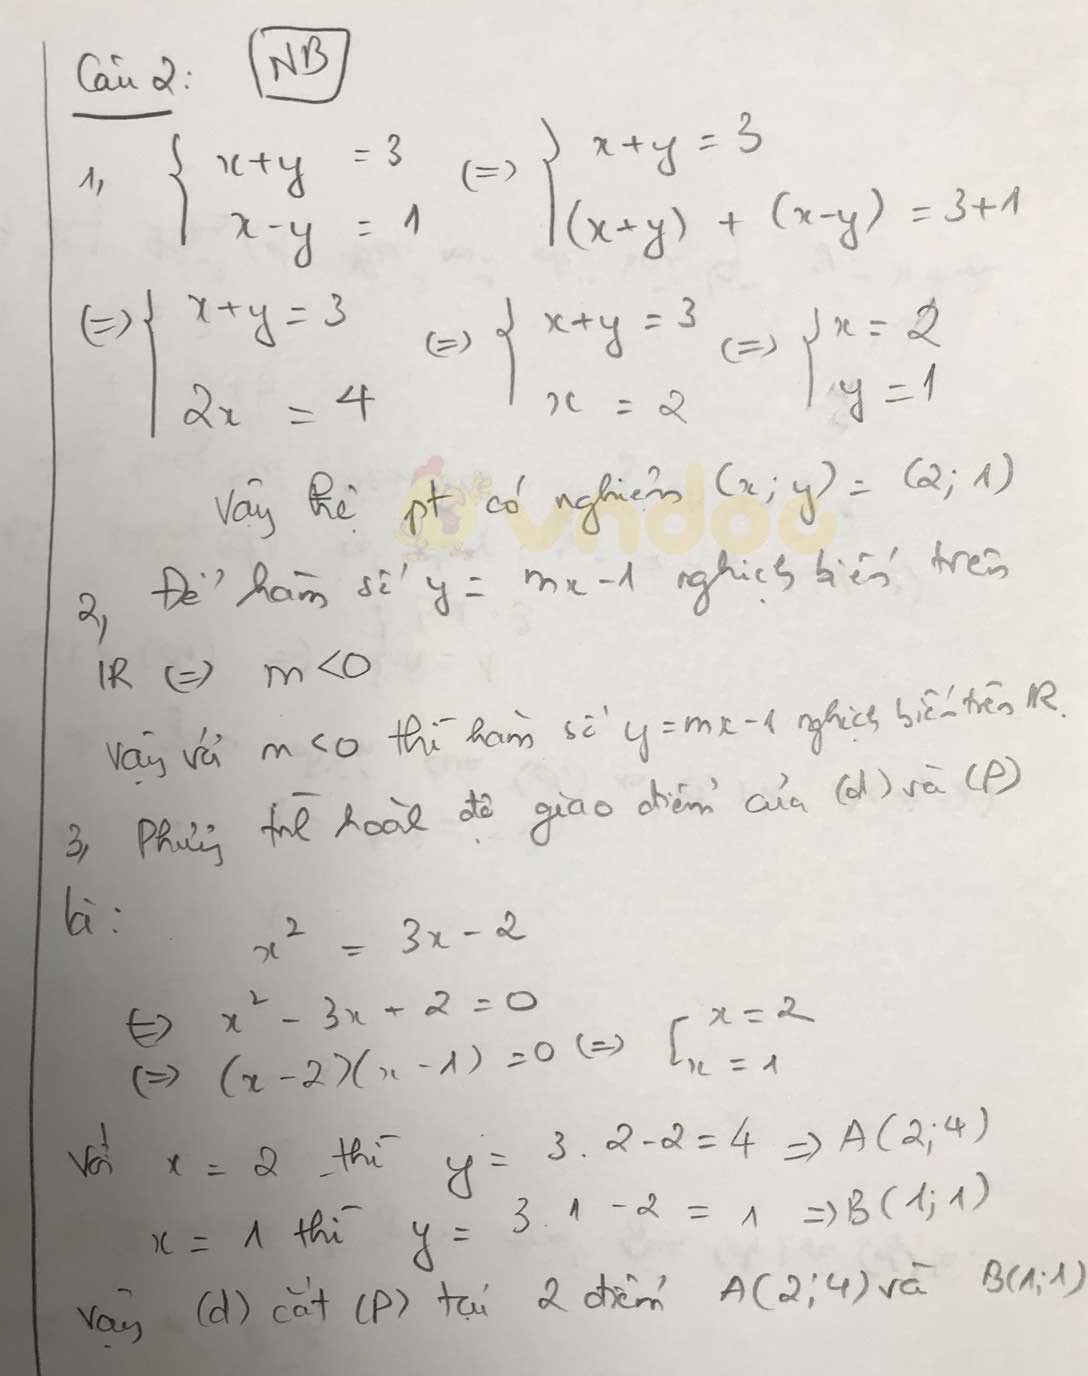 Câu 2: NB
1, { x+y = 3 (=) { x+y = 3
x-y = 1 (x+y) + (x-y) = 3+1
(=) { x+y = 3 (=) { x+y = 3 (=) { x = 2
2x = 4 x = 2 y = 1
Vậy hệ pt có nghiệm (x; y) = (2; 1)
vndoc
2, Để hàm số y = mx-1 nghịch biến trên
IR (=) m<0
Vậy với m<0 thì hàm số y=mx-1 nghịch biến trên IR.
3, Phương trình hoành độ giao điểm của (d) và (P)
là:
x² = 3x-2
(=) x² - 3x + 2 = 0
(=) (x-2)(x-1) = 0 (=) [ x = 2
x = 1
Với x = 2 thì y = 3.2-2 = 4 => A(2;4)
x = 1 thì y = 3.1-2 = 1 => B(1;1)
Vậy (d) cắt (P) tại 2 điểm A(2;4) và B(1;1)